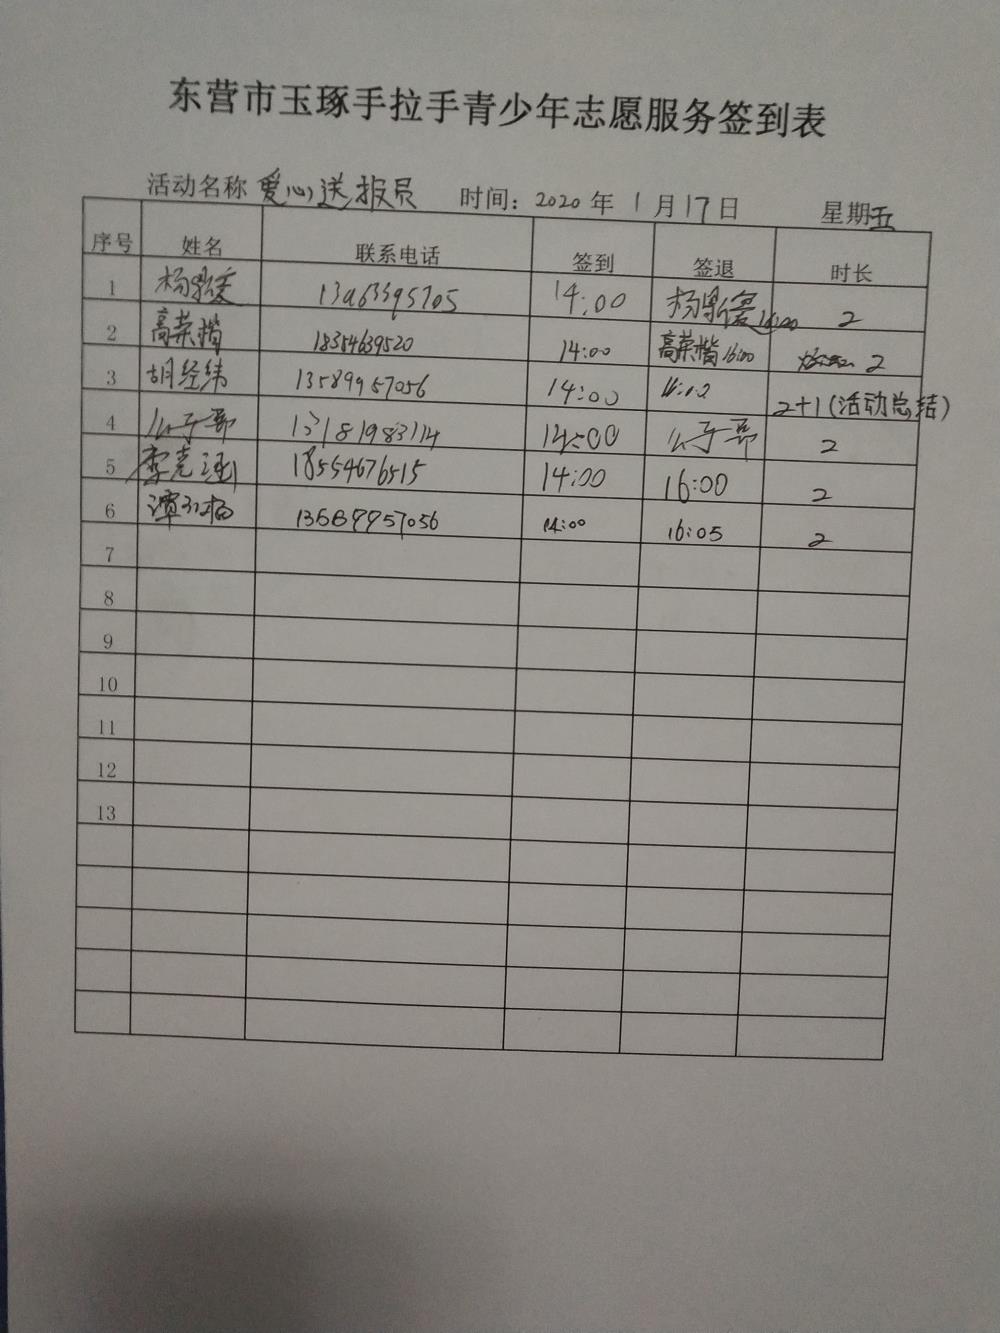 东营市玉琢手拉手青少年志愿服务签到表
活动名称 爱心送报员 时间：2020 年 1 月 17 日 星期五
序号 姓名 联系电话 签到 签退 时长
1 14:00 16:00 2
2 高荣楷 18354639520 14:00 高荣楷 16:00 2
3 胡经纬 13589957056 14:00 16:02 2+1（活动总结）
4 13181983114 14:00 2
5 李克涵 18554676515 14:00 16:00 2
6 14:00 16:05 2
7
8
9
10
11
12
13